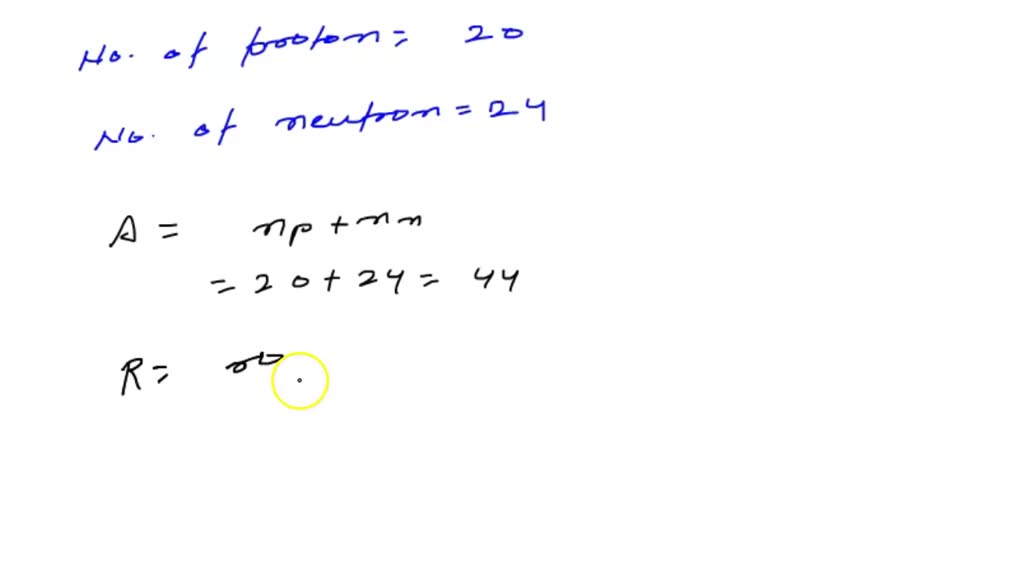 No. of proton = 20
No. of neutron = 24
A = np + nn
= 20 + 24 = 44
R = r0